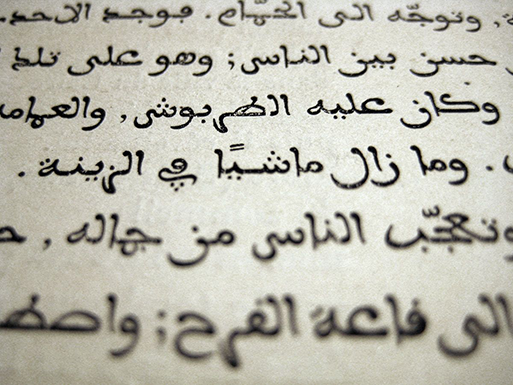 وتوجّه الى الحمّام. فوجد الاحد.
حسن بين الناس; وهو على تلك
وكان عليه الطربوش, والعمامة
. وما زال ماشيًا في الزينة.
وتعجّب الناس من جماله,
الى قاعة الفرح; واصط